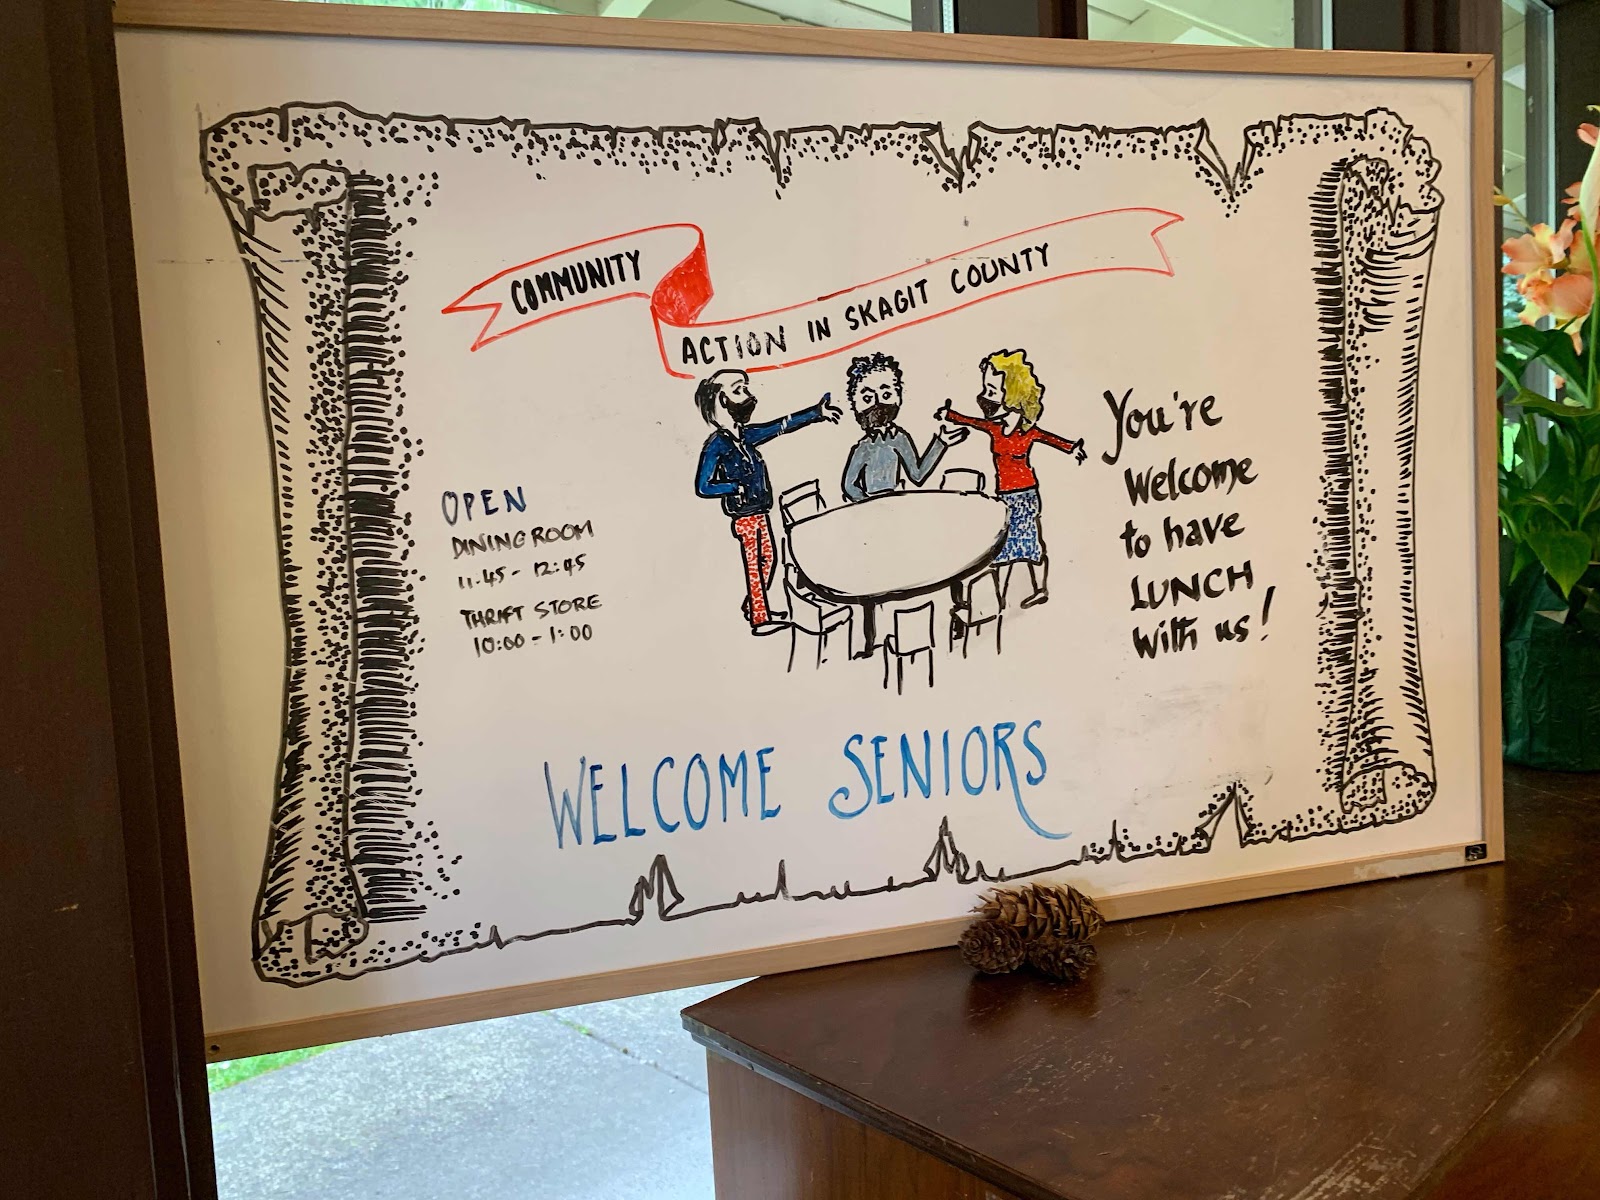 COMMUNITY
ACTION IN SKAGIT COUNTY
OPEN
DINING ROOM
11.45 - 12:45
THRIFT STORE
10:00 - 1:00
You're
Welcome
to have
LUNCH
with us!
WELCOME SENIORS